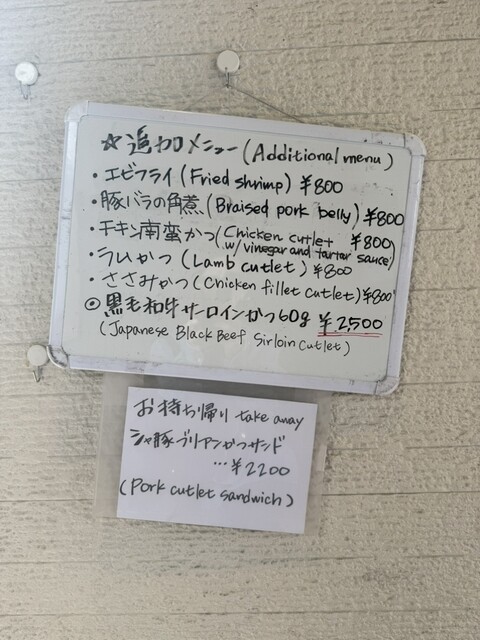 ☆追加メニュー(Additional menu)
・エビフライ(Fried shrimp) ¥800
・豚バラの角煮(Braised pork belly) ¥800
・チキン南蛮かつ(Chicken cutlet w/vinegar and tartar sauce) ¥800
・ラムかつ(Lamb cutlet) ¥800
・ささみかつ(Chicken fillet cutlet) ¥800
◎黒毛和牛サーロインかつ60g ¥2,500
(Japanese Black Beef Sirloin cutlet)
お持ち帰り take away
シャ豚ブリアンかつサンド
…¥2200
(Pork cutlet sandwich)